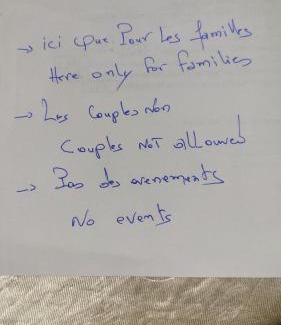 → ici que Pour Les familles
Here only for families
→ Les Couples Non
Couples NOT allowed
→ Pas des evenements
No events